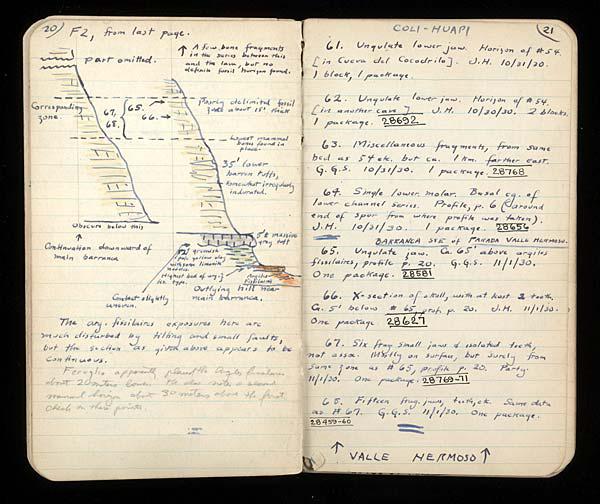 20) F2, from last page.
part omitted.
↑ A few bone fragments
in the series between this
and the lava, but no
definite fossil horizon found.
Corresponding
zone.
67,
68.
65. →
66. →
Poorly delimited fossil
zone about 15' thick
Lowest mammal
bone found in
place.
35' lower
barren tuffs,
somewhat irregularly
indurated.
Obscure below this
↑
Continuation downward of
main barranca
5' ± massive
gray tuff
Highest bed of arg.
fis. type.
Argiles
fissilaires
Contact slightly
uneven.
Outlying hill near
main barranca.
The arg. fissilaires exposures here are
much disturbed by tilting and small faults,
but the section as given above appears to be
continuous.
Feruglio apparently placed the Argiles fissilaires
about 20 meters lower. He also notes a second
mammal horizon about 30 meters above the first
COLI-HUAPI
21
61. Ungulate lower jaw. Horizon of #54.
[in Cueva del Cocodrilo]. J.H. 10/31/30.
1 block, 1 package.
62. Ungulate lower jaw. Horizon of #54.
[in another cave] J.H. 10/30/30. 2 blocks.
1 package. 28692
63. Miscellaneous fragments, from same
bed as 54 etc. but ca. 1 km. farther east.
G.G.S. 10/31/30. 1 package. 28768
64. Single lower molar. Basal cg. of
lower channel series. Profile, p. 6 (around
end of spur from where profile was taken).
J.H. 10/31/30. 1 package. 28656
BARRANCA SE of PARADA VALLE HERMOSO.
65. Ungulate jaw. Ca. 65' above argiles
fissilaires, profile p. 20. G.G.S. 11/1/30.
One package. 28581
66. X-section of skull, with at least 2 teeth.
Ca. 5' below #65, prof. p. 20. J.H. 11/1/30.
One package 28627
67. Six frag. small jaws & isolated teeth,
not assoc. Mostly on surface, but surely from
same zone as #65, profile p. 20. Party
11/1/30. One package. 28769-71
68. Fifteen frag. jaws, teeth, etc. Same data
as #67. G.G.S. 11/1/30. One package.
28459-60
↑ VALLE HERMOSO ↑